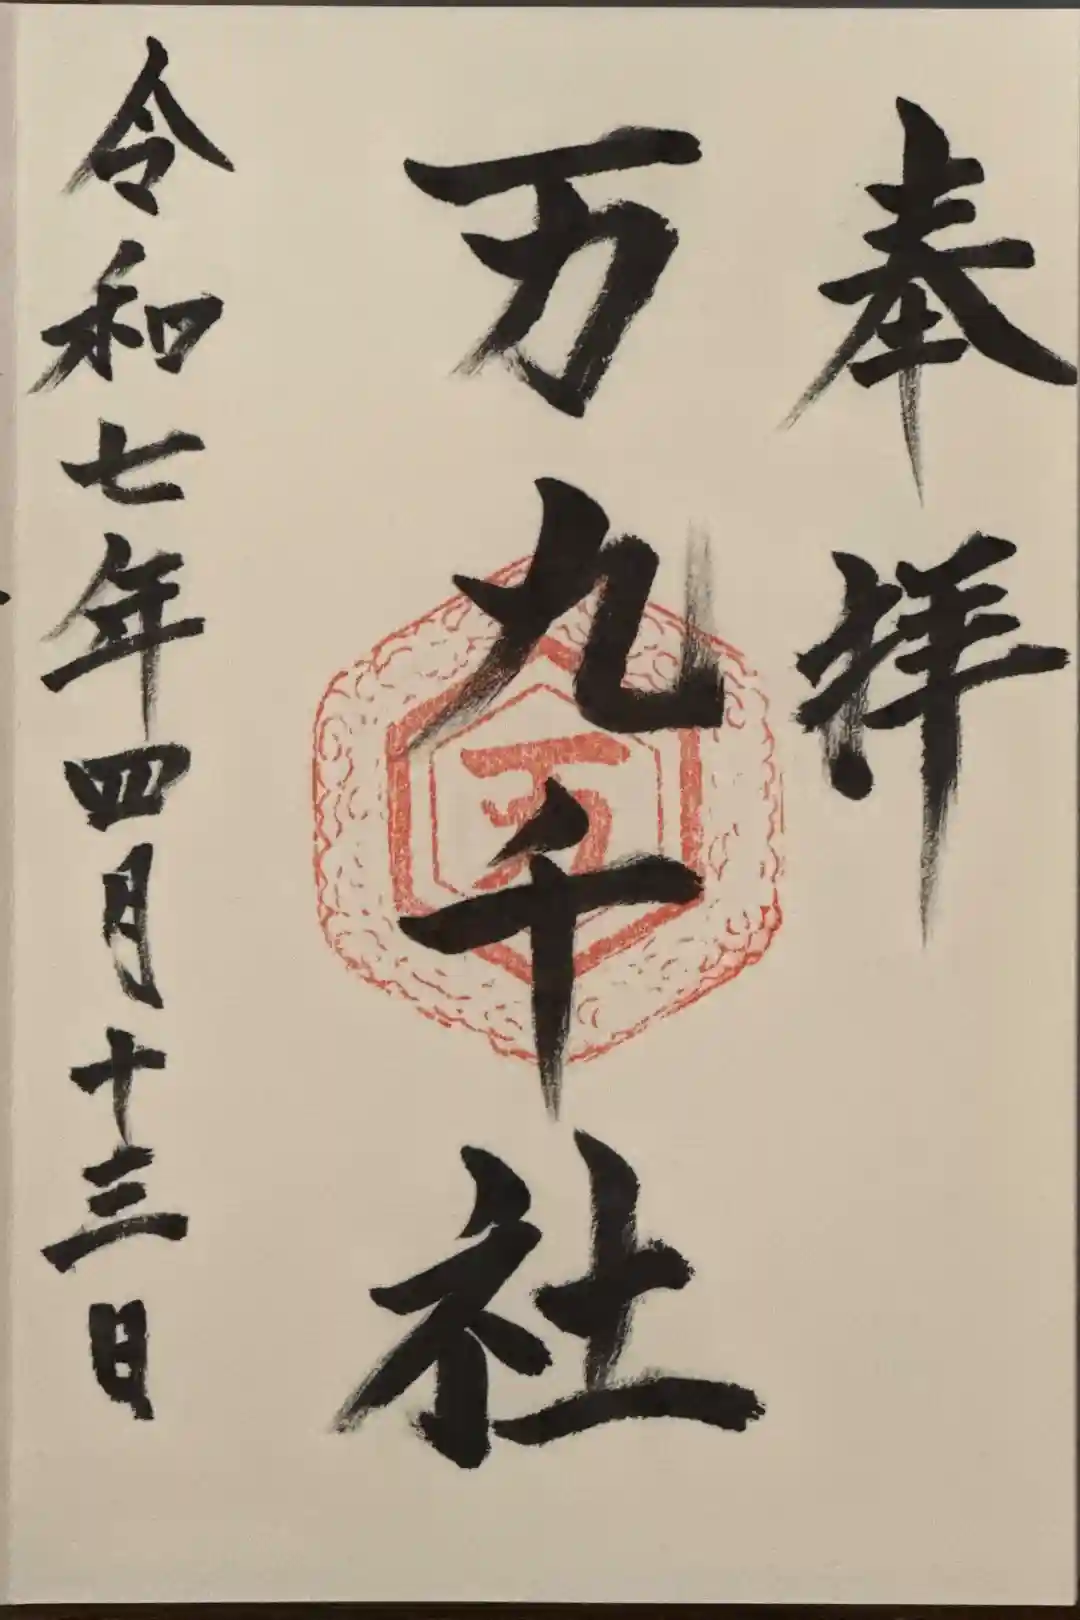 奉拝
万九千社
万
令和七年四月十三日